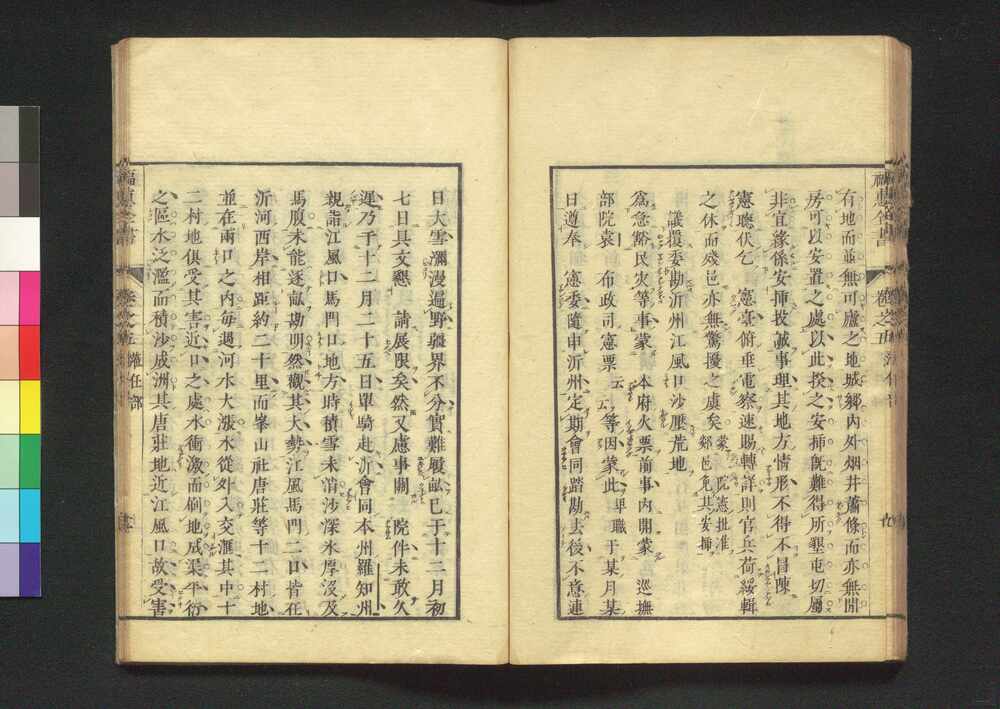 有地而並無可廬之地城鄉內外烟井蕭條而亦無閒
房可以安置之處以此揆之安揷旣難得所墾屯切屬
非宜緣係安揷投誠事理其地方情形不得不冒陳
憲聽伏乞　憲臺俯垂電察速賜轉詳則官兵荷綏輯
之休而殘邑亦無驚擾之虞矣蒙　院憲批准郯邑免其安揷
議覆委勘沂州江風口沙壓荒地
爲急豁民災等事蒙　本府火票前事內開蒙　巡撫
部院袁　布政司憲票　云　云等因蒙此卑職于某月某
日遵奉　憲委隨申沂州定期會同踏勘去後不意連
福惠全書
卷之五
日大雪瀰漫遍野疆界不分實難履畝已于十二月初
七日具文懇　請展限矣然又慮事關　院件未敢久
遲乃于十二月二十五日單騎赴沂會同本州羅知州
親詣江風口馬門口地方時積雪未消沙深氷厚沒及
馬腹未能逐畝勘明然觀其大勢江風馬門二口皆在
沂河西岸相距約二十里而峯山社唐莊等十二村地
並在兩口之內每遇河水大漲水從外入交滙其中十
二村地俱受其害近口之處水衝激而刷地成渠平衍
之區水泛濫而積沙成洲其唐莊地近江風口故受害
福惠全書
卷之五
蒞任部